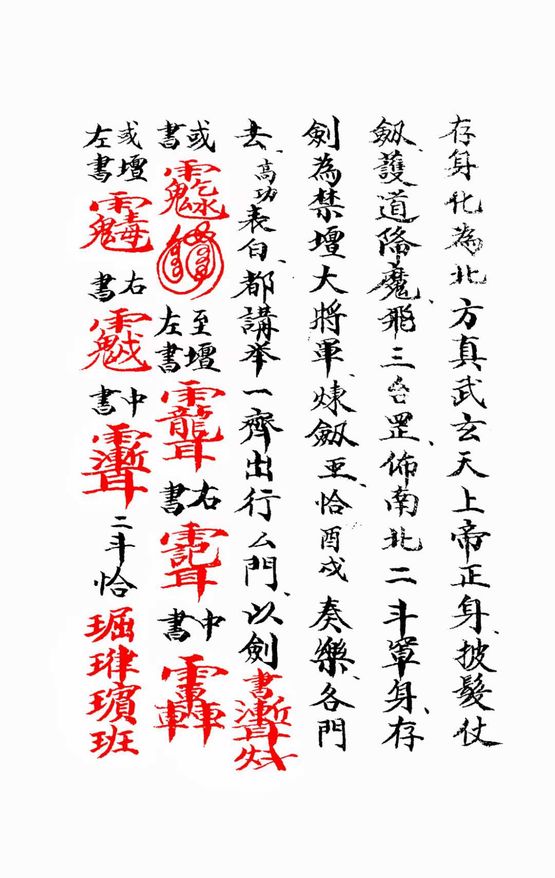 存身化為北方真武玄天上帝正身、披髮仗
劔、護道降魔、飛三台罡、佈南北二斗罩身、存
劍為禁壇大將軍、煉劔、恰酉戌奏樂、各門
去、高功表白、都講举一齊出行厶門、以劍書
或書 至壇左書 右書 中書
或壇左書 右書 中書 二斗恰 璸班